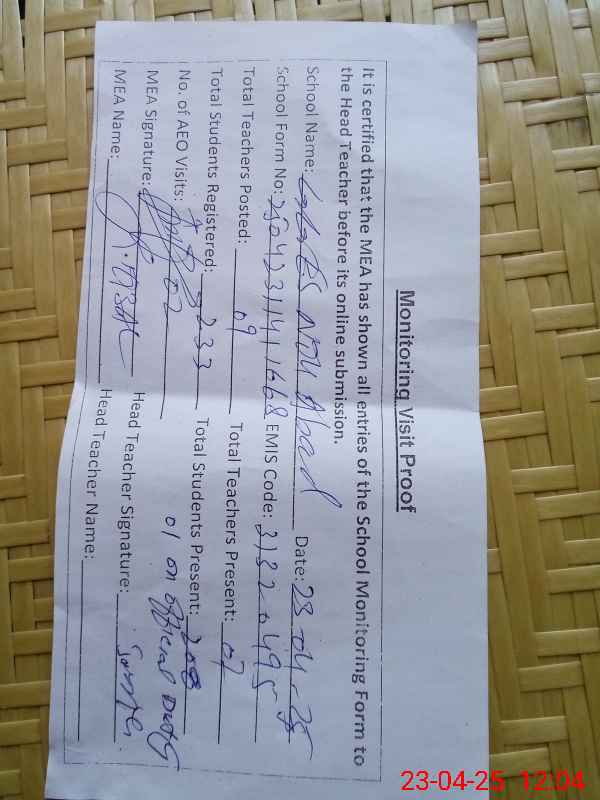 Monitoring Visit Proof
It is certified that the MEA has shown all entries of the School Monitoring Form to
the Head Teacher before its online submission.
School Name: NOU Abad Date: 23-04-25
School Form No: EMIS Code: 31320495
Total Teachers Posted: 09 Total Teachers Present: 07
Total Students Registered: 233 Total Students Present: 208
No. of AEO Visits: 02 01 on official Duty
MEA Signature: Head Teacher Signature:
MEA Name: Head Teacher Name:
23-04-25 12:04